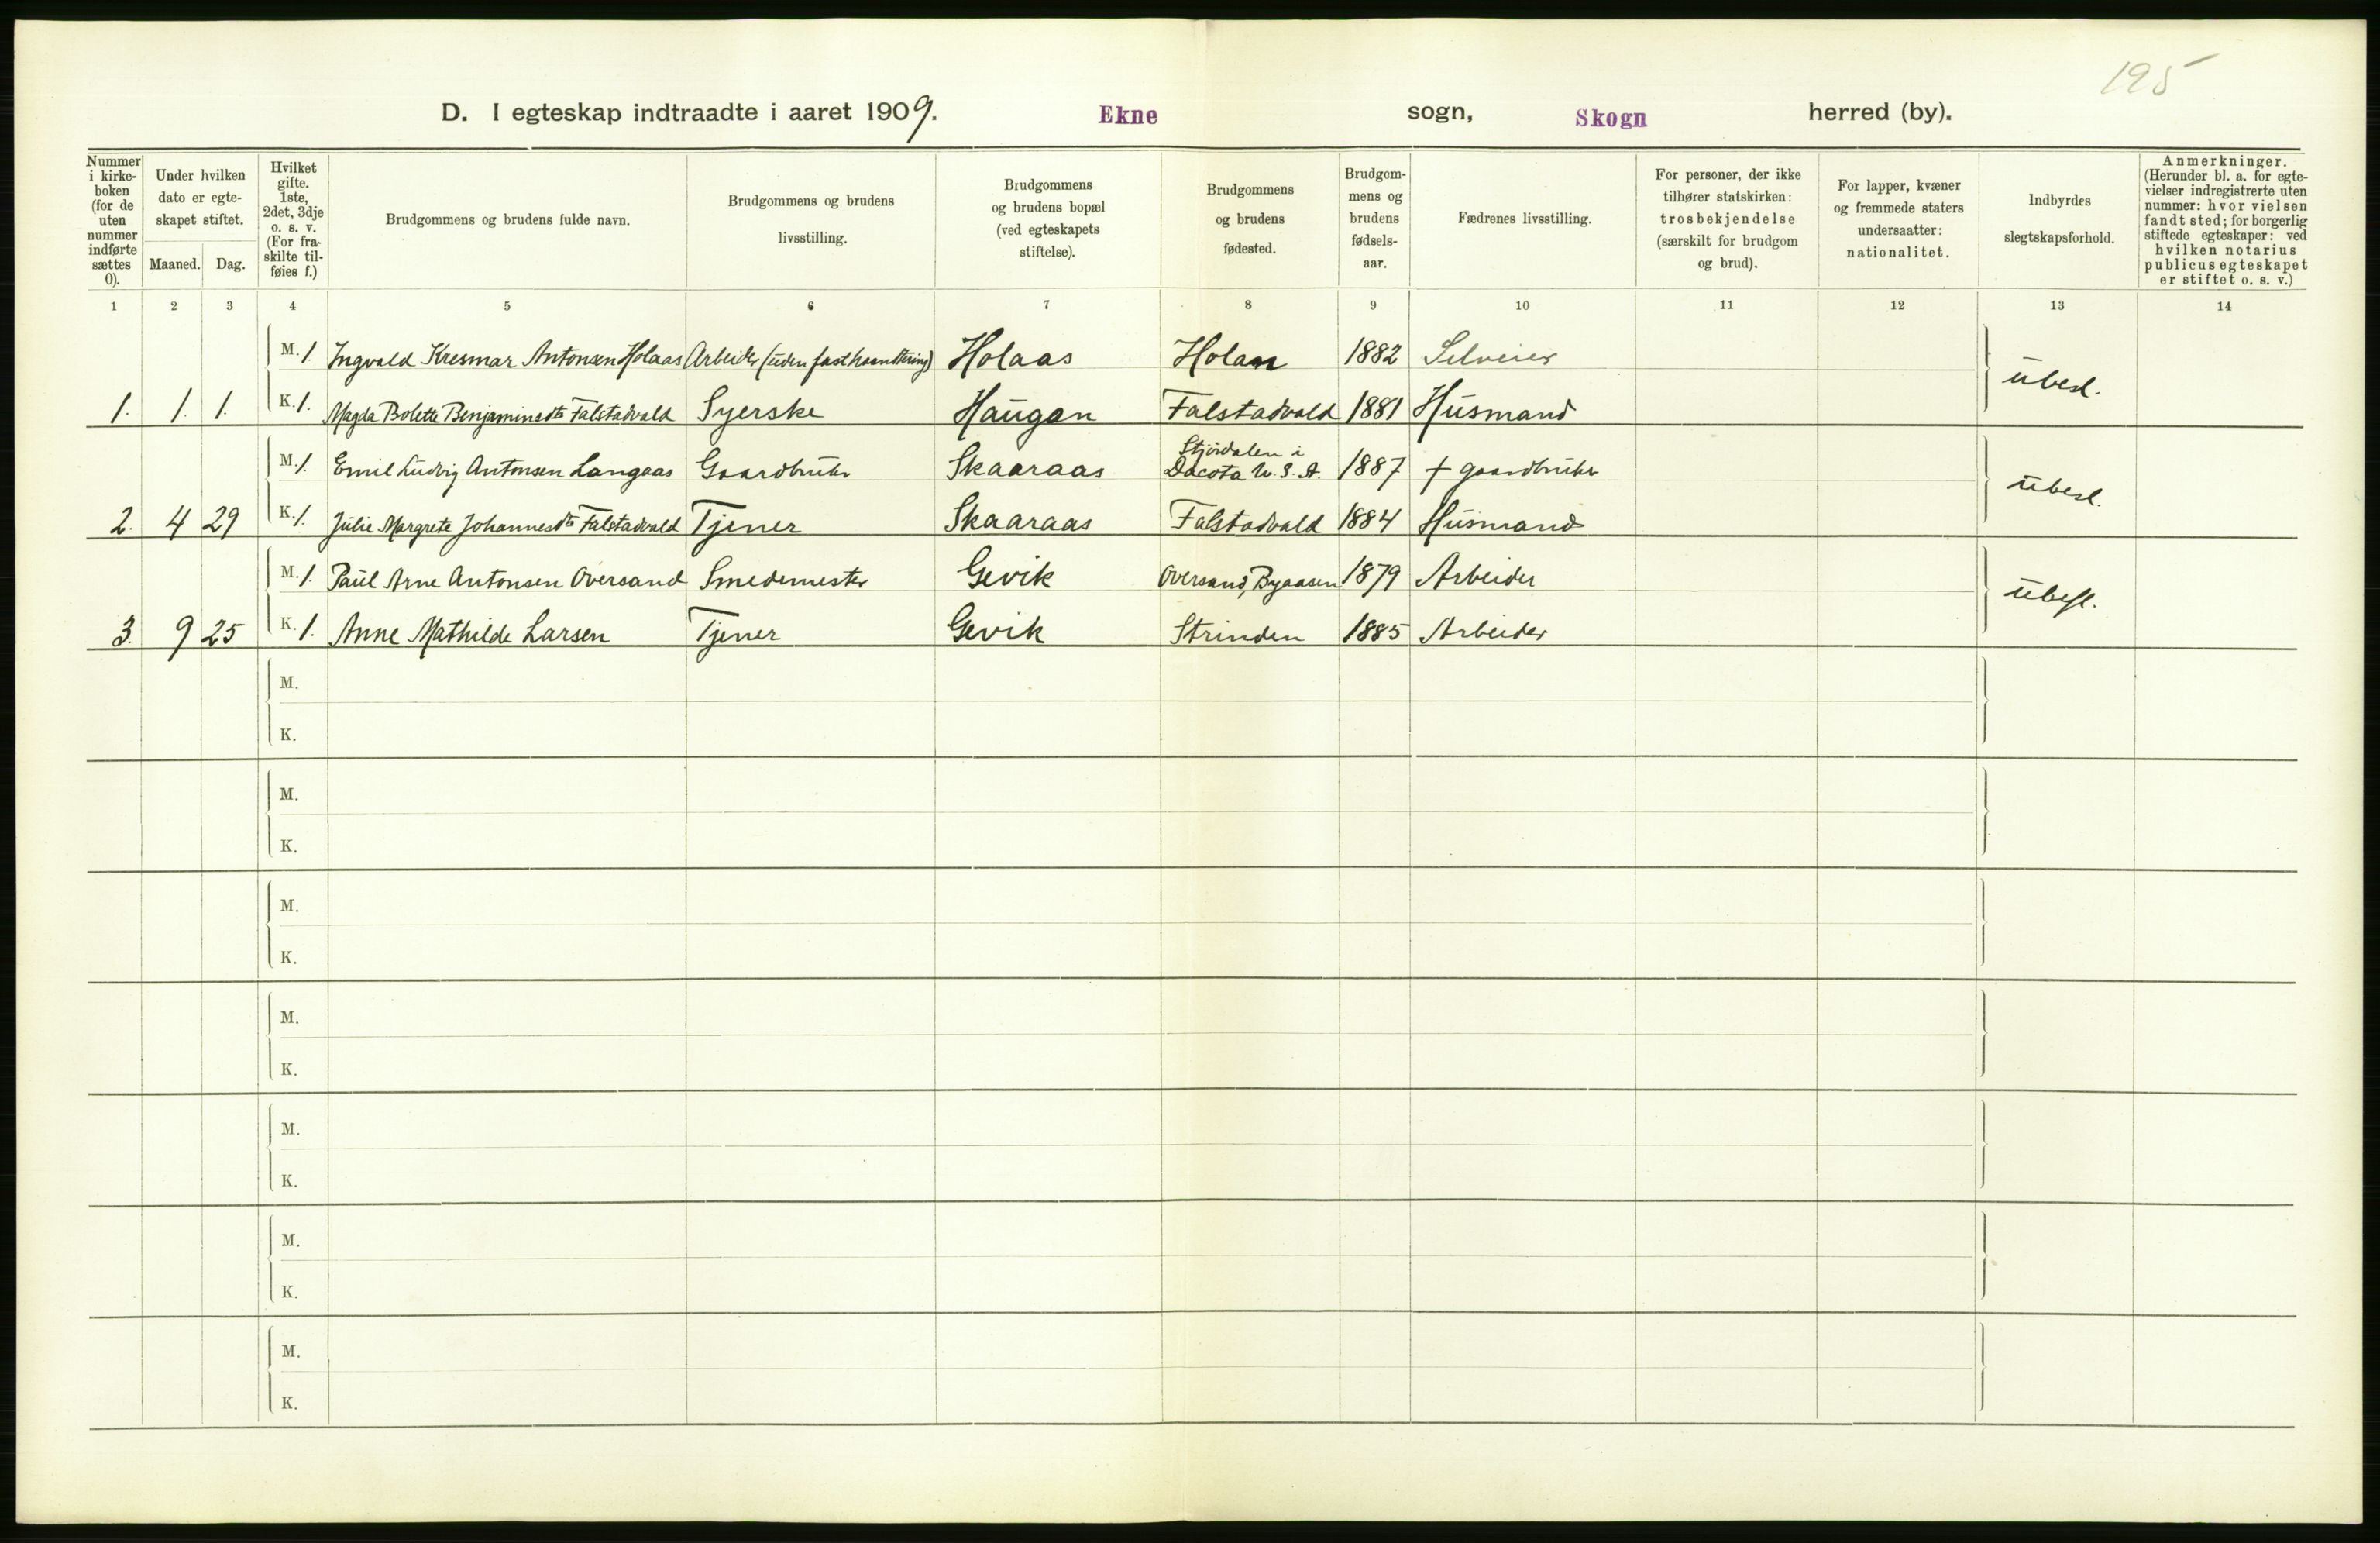 195
D. I egteskap indtraadte i aaret 1909. Ekne sogn, Skogn herred (by).
Nummer i kirke- boken (for de uten nummer indførte sættes 0).
Under hvilken dato er egte- skapet stiftet.
Maaned. Dag.
Hvilket gifte. 1ste, 2det, 3dje o. s. v. (For fra- skilte til- føies f.)
Brudgommens og brudens fulde navn.
Brudgommens og brudens livsstilling.
Brudgommens og brudens bopæl (ved egteskapets stiftelse).
Brudgommens og brudens fødested.
Brudgom- mens og brudens fødsels- aar.
Fædrenes livsstilling.
For personer, der ikke tilhører statskirken: trosbekjendelse (særskilt for brudgom og brud).
For lapper, kvæner og fremmede staters undersaatter: nationalitet.
Indbyrdes slegtskapsforhold.
Anmerkninger. (Herunder bl. a. for egte- vielser indregistrerte uten nummer: hvor vielsen fandt sted; for borgerlig stiftede egteskaper: ved hvilken notarius publicus egteskapet er stiftet o. s. v.)
1 2 3 4 5 6 7 8 9 10 11 12 13 14
M. 1. Ingvald Kresmar Antonsen Holaas Arbeider (uden fast haandtering) Holaas Holan 1882 Selveier
ubesl.
1. 1. 1. K. 1. Magda Bolette Benjaminsdtr Falstadvald Syerske Haugan Falstadvald 1881 Husmand
M. 1. Emil Ludvig Antonsen Langaas Gaardbruker Skaaraas Stjørdalen i Dacota U. S. A. 1887 + gaardbruker
ubesl.
2. 4 29 K. 1. Julie Margrete Johannesdtr Falstadvald Tjener Skaaraas Falstadvald 1884 Husmand
M. 1. Paul Arne Antonsen Oversand Smedemester Gevik Oversand, Byaasen 1879 Arbeider
ubesl.
3. 9 25 K. 1. Anne Mathilde Larsen Tjener Gevik Strinden 1885 Arbeider
M.
K.
M.
K.
M.
K.
M.
K.
M.
K.
M.
K.
M.
K.